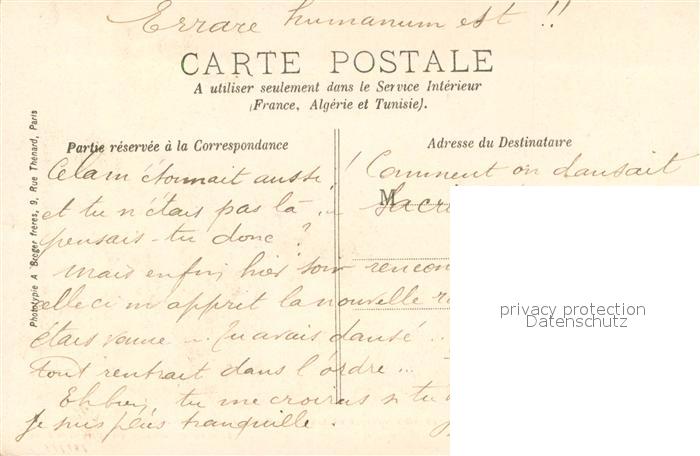 Errare humanum est !!
CARTE POSTALE
A utiliser seulement dans le Service Intérieur
(France, Algérie et Tunisie).
Partie réservée à la Correspondance
Adresse du Destinataire
Phototypie A Breger frères, 9, Rue Thenard, Paris
M
Cela m'étonnait aussi ! Comment on dansait
et tu n'étais pas là ...
pensais-tu donc ?
Mais enfin, hier soir rencon
celle ci m'apprit la nouvelle
étais venue ... Tu avais dansé ..
tout rentrait dans l'ordre ...
Eh bien, tu me croiras si tu
je suis plus tranquille.
privacy protection
Datenschutz